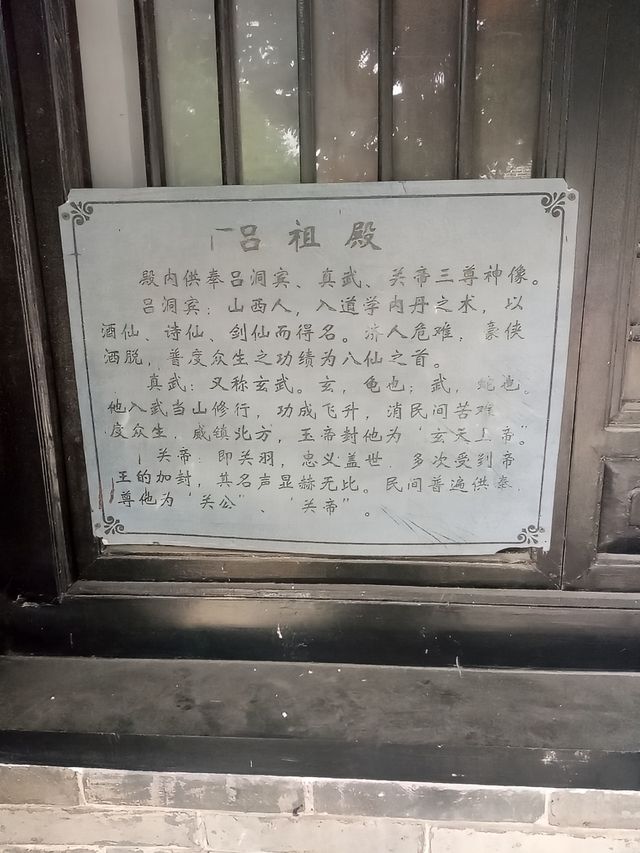 吕祖殿
殿内供奉吕洞宾、真武、关帝三尊神像。
吕洞宾：山西人，入道学内丹之术，以
酒仙、诗仙、剑仙而得名。济人危难，豪侠
洒脱，普度众生之功绩为八仙之首。
真武：又称玄武。玄，龟也；武，蛇也。
他入武当山修行，功成飞升，消民间苦难
度众生，威镇北方，玉帝封他为“玄天上帝”。
关帝：即关羽，忠义盖世，多次受到帝
王的加封，其名声显赫无比。民间普遍供奉，
尊他为“关公”、关帝”。